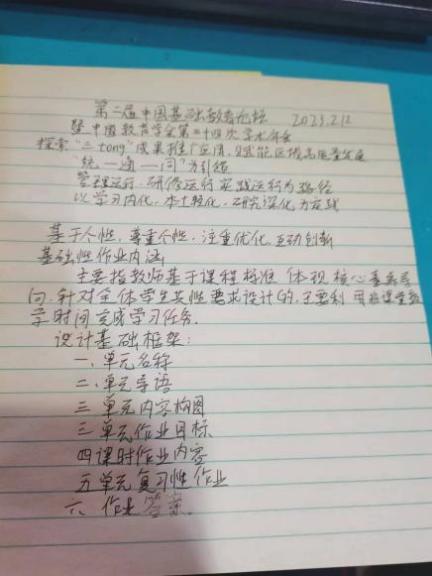 第二届中国基础教育论坛 2023.2.12
暨中国教育学会第三十四次学术年会
探索"三tong"成果推广应用,赋能区域高质量发展
"统一通一同"为引领
管理运行,研修运行实践运行为路径
以学习内化,本土转化,研究深化为主线
基于个性,尊重个性,注重优化,互动创新
基础性作业内涵
主要指教师基于课程标准 体现核心素养导
向,针对全体学生共性要求设计的,主要利用非课堂教
学时间完成学习任务.
设计基础框架:
一、单元名称
二、单元导语
三 单元内容构图
三 单元作业目标
四 课时作业内容
五 单元复习性作业
六、作业答案.